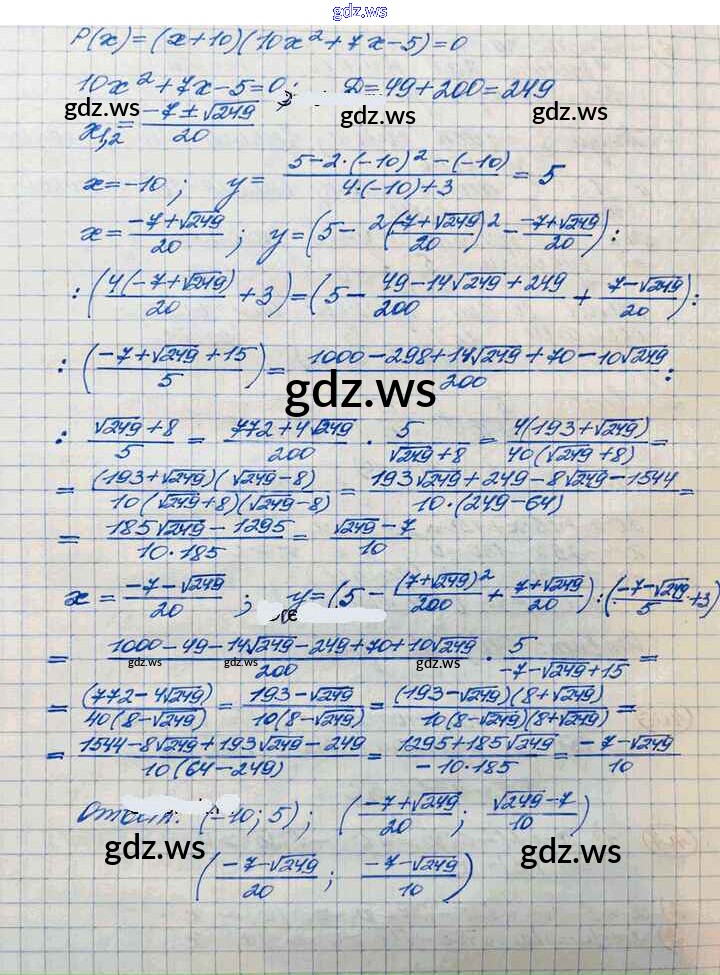 gdz.ws
P(x)=(x+10)(10x²+7x-5)=0
10x²+7x-5=0; D=49+200=249
gdz.ws gdz.ws gdz.ws
x₁,₂=(-7±√249)/20
x=-10; y=(5-2·(-10)²-(-10))/(4·(-10)+3)=5
x=(-7+√249)/20; y=(5-2(-7+√249)²/20-(-7+√249)/20):
:(4(-7+√249)/20+3)=(5-(49-14√249+249)/200+(7-√249)/20):
:((-7+√249+15)/5)=(1000-298+14√249+70-10√249)/200:
gdz.ws
:(√249+8)/5=(772+4√249)/200·5/(√249+8)=4(193+√249)/(40(√249+8))=
=(193+√249)(√249-8)/(10(√249+8)(√249-8))=(193√249+249-8√249-1544)/(10·(249-64))=
=(185√249-1295)/(10·185)=(√249-7)/10
x=(-7-√249)/20; y=(5-(7+√249)²/200+(7+√249)/20):((-7-√249)/5+3)
=(1000-49-14√249-249+70+10√249)/200·5/(-7-√249+15)=
gdz.ws gdz.ws gdz.ws
=(772-4√249)/(40(8-√249))=(193-√249)/(10(8-√249))=(193-√249)(8+√249)/(10(8-√249)(8+√249))=
=(1544-8√249+193√249-249)/(10(64-249))=(1295+185√249)/(-10·185)=(-7-√249)/10
(-10; 5); ((-7+√249)/20; (√249-7)/10)
gdz.ws gdz.ws
((-7-√249)/20; (-7-√249)/10)